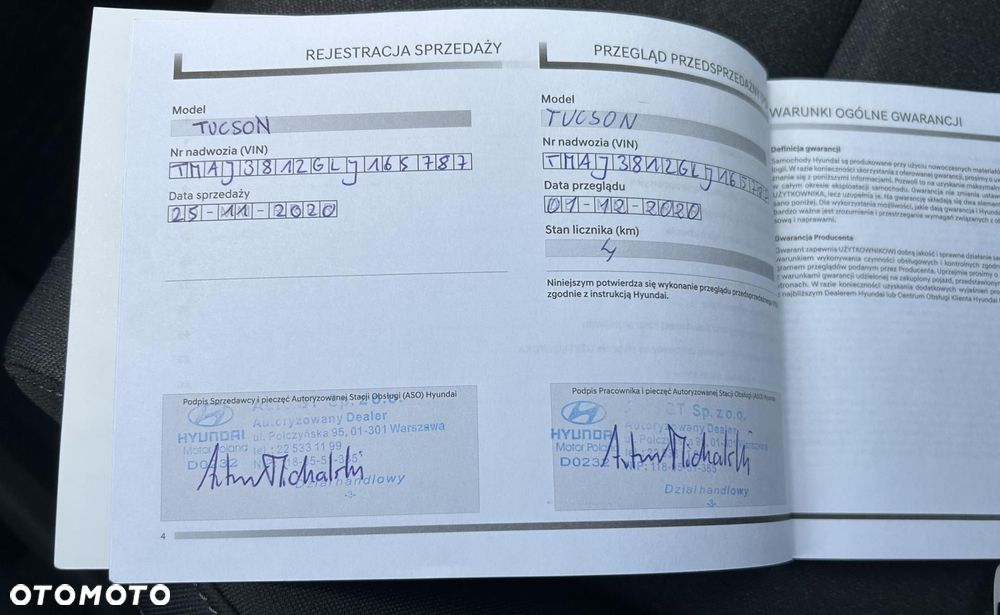 REJESTRACJA SPRZEDAŻY
Model
TUCSON
Nr nadwozia (VIN)
TMAJ3812GLJ165787
Data sprzedaży
25-11-2020
Podpis Sprzedawcy i pieczęć Autoryzowanej Stacji Obsługi (ASO) Hyundai
Sp. z o.o.
Autoryzowany Dealer
HYUNDAI
ul. Połczyńska 95, 01-301 Warszawa
Motor Poland
tel.: 22 533 11 99
D0232
Artur Michalski
Dział handlowy
-3-
4
PRZEGLĄD PRZEDSPRZEDAŻNY
Model
TUCSON
Nr nadwozia (VIN)
TMAJ3812GLJ165787
Data przeglądu
01-12-2020
Stan licznika (km)
4
Niniejszym potwierdza się wykonanie przeglądu przedsprzedażnego
zgodnie z instrukcją Hyundai.
Podpis Pracownika i pieczęć Autoryzowanej Stacji Obsługi (ASO) Hyundai
GT Sp. z o.o.
Autoryzowany Dealer
HYUNDAI
Motor Poland
D0232
Artur Michalski
Dział handlowy
-3-
WARUNKI OGÓLNE GWARANCJI
Definicja gwarancji
Samochody Hyundai są produkowane przy użyciu nowoczesnych
logii. W razie konieczności skorzystania z oferowanej gwarancji, prosimy o
znanie się z poniższymi informacjami. Pozwoli to na uzyskanie
w całym okresie eksploatacji samochodu. Gwarancja nie zmienia
UŻYTKOWNIKA, lecz uzupełnia je. Na gwarancję składają się dwa
sano poniżej. Dla wykorzystania możliwości, jakie dają gwarancja i
bardzo ważne jest zrozumienie i przestrzeganie wymagań związanych z
sową i naprawami.
Gwarancja Producenta
Gwarant zapewnia UŻYTKOWNIKOWI dobrą jakość i sprawne działanie
warunkiem wykonywania czynności obsługowych i kontrolnych
gramem przeglądów podanym przez Producenta. Uprzejmie prosimy o
z warunkami gwarancji udzielonej na zakupiony pojazd,
stronach. W razie konieczności uzyskania dodatkowych wyjaśnień
z najbliższym Dealerem Hyundai lub Centrum Obsługi Klienta Hyundai
OTOMOTO